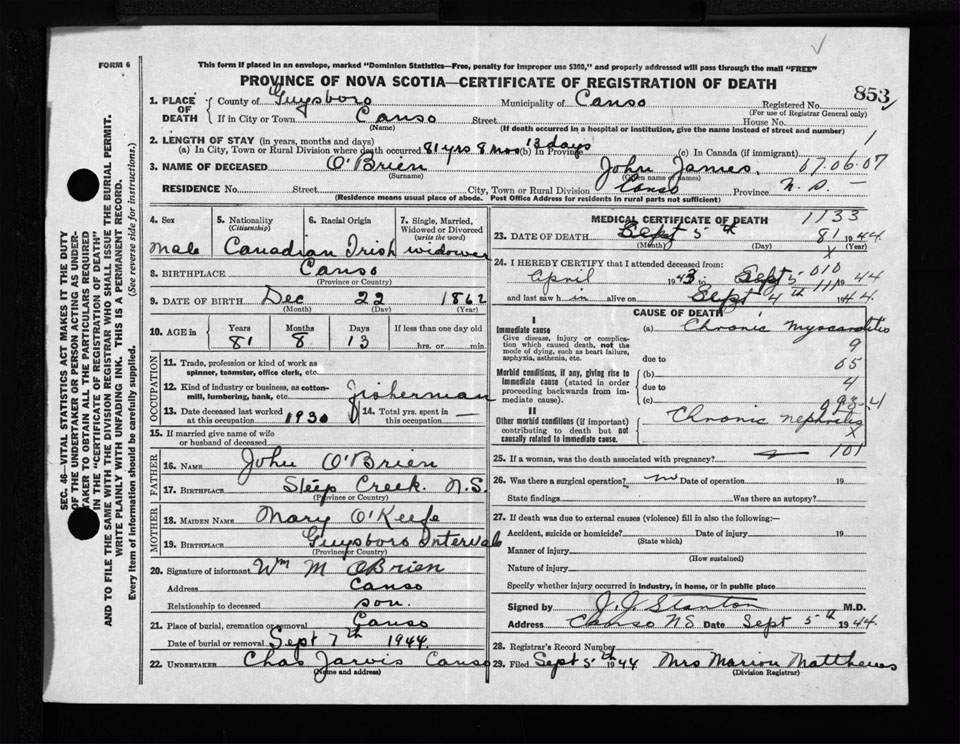 FORM 6
This form if placed in an envelope, marked "Dominion Statistics—Free, penalty for improper use $300," and properly addressed will pass through the mail "FREE"
PROVINCE OF NOVA SCOTIA—CERTIFICATE OF REGISTRATION OF DEATH
853
SEC. 46—VITAL STATISTICS ACT MAKES IT THE DUTY
OF THE UNDERTAKER OR PERSON ACTING AS UNDER-
TAKER TO OBTAIN ALL THE PARTICULARS REQUIRED
IN THE "CERTIFICATE OF REGISTRATION OF DEATH"
AND TO FILE THE SAME WITH THE DIVISION REGISTRAR WHO SHALL ISSUE THE BURIAL PERMIT.
WRITE PLAINLY WITH UNFADING INK. THIS IS A PERMANENT RECORD.
Every item of information should be carefully supplied. (See reverse side for instructions.)
1. PLACE OF DEATH
County of Guysboro Municipality of Canso Registered No.
(For use of Registrar General only)
If in City or Town Canso Street House No.
(Name) (If death occurred in a hospital or institution, give the name instead of street and number)
2. LENGTH OF STAY (in years, months and days)
(a) In City, Town or Rural Division where death occurred 81 yrs 8 mos 13 days (b) In Province (c) In Canada (if immigrant) 1
3. NAME OF DECEASED O'Brien John James. 67.06.07
(Surname) (Given name or names)
RESIDENCE No. Street City, Town or Rural Division Canso Province N.S. —
(Residence means usual place of abode. Post Office Address for residents in rural parts not sufficient)
4. Sex
Male
5. Nationality
(Citizenship)
Canadian
6. Racial Origin
Irish
7. Single, Married,
Widowed or Divorced
(write the word)
widower
8. BIRTHPLACE Canso
(Province or Country)
9. DATE OF BIRTH Dec 22 1862
(Month) (Day) (Year)
10. AGE in Years Months Days If less than one day old
81 8 13 hrs. or min.
OCCUPATION
11. Trade, profession or kind of work as
spinner, teamster, office clerk, etc.
12. Kind of industry or business, as cotton-
mill, lumbering, bank, etc. Fisherman
13. Date deceased last worked
at this occupation 1930
14. Total yrs. spent in
this occupation —
15. If married give name of wife
or husband of deceased
FATHER
16. NAME John O'Brien
17. BIRTHPLACE Steep Creek. N.S.
(Province or Country)
MOTHER
18. MAIDEN NAME Mary O'Keefe
19. BIRTHPLACE Guysboro Intervale
(Province or Country)
20. Signature of informant Wm M O'Brien
Address Canso
Relationship to deceased son.
21. Place of burial, cremation or removal Canso
Date of burial or removal Sept 7th 1944.
22. UNDERTAKER Chas Jarvis Canso
(Name and address)
MEDICAL CERTIFICATE OF DEATH 1133
23. DATE OF DEATH Sept 5th 81 1944
(Month) (Day) (Year)
X
24. I HEREBY CERTIFY that I attended deceased from:
April 1943 Sept 5 1944
010
111
and last saw him alive on Sept 4th 1944.
CAUSE OF DEATH
I
Immediate cause
Give disease, injury or complica-
tion which caused death, not the
mode of dying, such as heart failure,
asphyxia, asthenia, etc.
(a) Chronic Myocarditis
9
due to
65
Morbid conditions, if any, giving rise to
immediate cause (stated in order
proceeding backwards from im-
mediate cause).
(b)
4
due to
(c) 093.4
II
Other morbid conditions (if important)
contributing to death but not
causally related to immediate cause.
Chronic Nephritis
X
25. If a woman, was the death associated with pregnancy? 101
26. Was there a surgical operation? no Date of operation 19
State findings Was there an autopsy?
27. If death was due to external causes (violence) fill in also the following:—
Accident, suicide or homicide? Date of injury 19
(State which)
Manner of injury
(How sustained)
Nature of injury
Specify whether injury occurred in industry, in home, or in public place
Signed by J. J. Stanton M.D.
Address Canso NS Date Sept 5th 1944
28. Registrar's Record Number
29. Filed Sept 5th 1944 Mrs Marion Matthews
(Division Registrar)